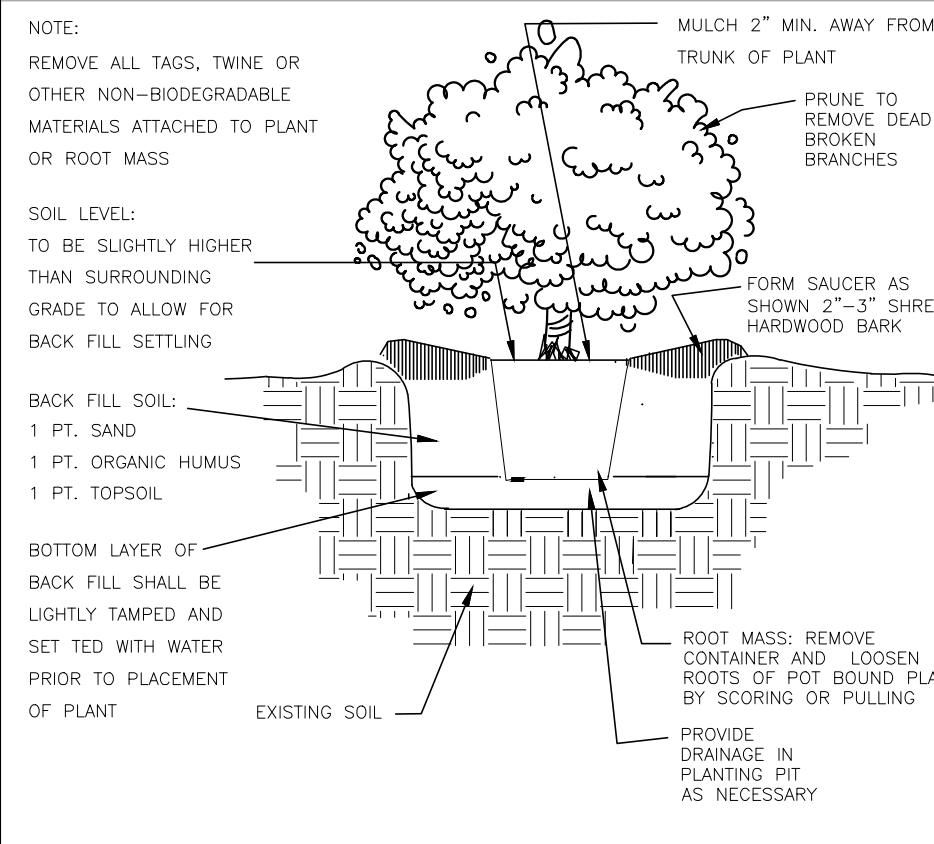 NOTE:
REMOVE ALL TAGS, TWINE OR
OTHER NON-BIODEGRADABLE
MATERIALS ATTACHED TO PLANT
OR ROOT MASS
SOIL LEVEL:
TO BE SLIGHTLY HIGHER
THAN SURROUNDING
GRADE TO ALLOW FOR
BACK FILL SETTLING
BACK FILL SOIL:
1 PT. SAND
1 PT. ORGANIC HUMUS
1 PT. TOPSOIL
BOTTOM LAYER OF
BACK FILL SHALL BE
LIGHTLY TAMPED AND
SET TED WITH WATER
PRIOR TO PLACEMENT
OF PLANT
EXISTING SOIL
MULCH 2" MIN. AWAY FROM
TRUNK OF PLANT
PRUNE TO
REMOVE DEAD
BROKEN
BRANCHES
FORM SAUCER AS
SHOWN 2"-3" SHRE
HARDWOOD BARK
ROOT MASS: REMOVE
CONTAINER AND LOOSEN
ROOTS OF POT BOUND PLA
BY SCORING OR PULLING
PROVIDE
DRAINAGE IN
PLANTING PIT
AS NECESSARY